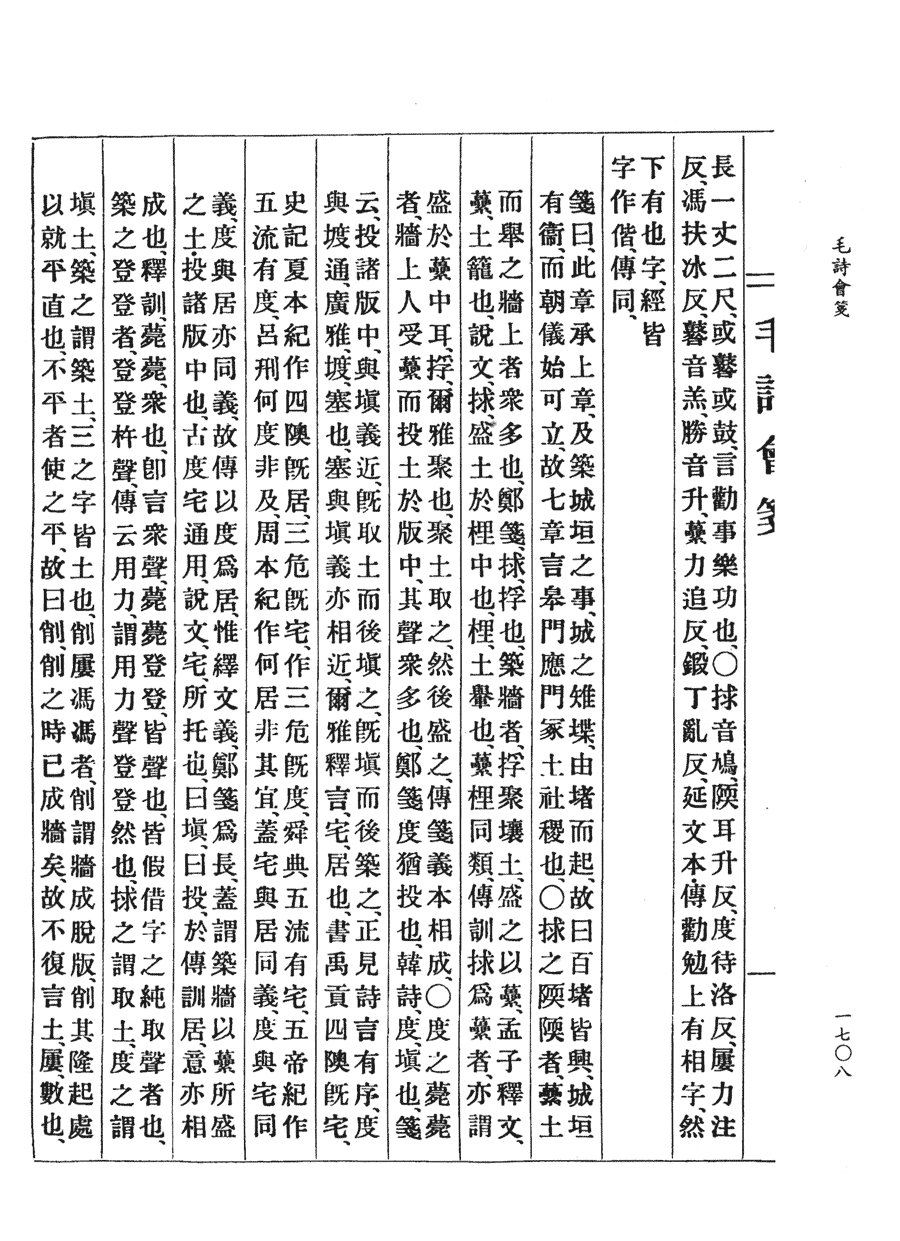 毛詩會箋
一七〇八
毛詩會箋
長一丈二尺、或鼛或鼓、言勸事樂功也、〇捄音鳩、陾耳升反、度待洛反、屢力注
反、馮扶冰反、鼛音羔、勝音升、虆力追反、鍛丁亂反、延文本、傳勸勉上有相字、然
下有也字、經皆
字作偕、傳同、
箋曰、此章承上章、及築城垣之事、城之雉堞、由堵而起、故曰百堵皆興、城垣
有衞、而朝儀始可立、故七章言皋門應門冢土社稷也、〇捄之陾陾者、虆土
而舉之牆上者衆多也、鄭箋、捄、捊也、築牆者、捊聚壤土、盛之以虆、孟子釋文、
虆、土籠也、說文、捄、盛土於梩中也、梩、土轝也、虆梩同類、傳訓捄爲虆者、亦謂
盛於虆中耳、捊、爾雅聚也、聚土取之、然後盛之、傳箋義本相成、〇度之薨薨
者、牆上人受虆而投土於版中、其聲衆多也、鄭箋度猶投也、韓詩、度、塡也、箋
云、投諸版中、與塡義近、旣取土而後塡之、旣塡而後築之、正見詩言有序、度
與㡯通、廣雅㡯、塞也、塞與塡義亦相近、爾雅釋言、宅、居也、書禹貢四隩旣宅、
史記夏本紀作四隩旣居、三危旣宅、作三危旣度、舜典五流有宅、五帝紀作
五流有度、呂刑何度非及、周本紀作何居非其宜、蓋宅與居同義、度與宅同
義、度與居亦同義、故傳以度爲居、惟繹文義、鄭箋爲長、蓋謂築牆以虆所盛
之土、投諸版中也、古度宅通用、說文、宅、所托也、曰塡、曰投、於傳訓居、意亦相
成也、釋訓、薨薨、衆也、卽言衆聲、薨薨登登、皆聲也、皆假借字之純取聲者也、
築之登登者、登登杵聲、傳云用力、謂用力聲登登然也、捄之謂取土、度之謂
塡土、築之謂築土、三之字皆土也、削屢馮馮者、削謂牆成脫版、削其隆起處
以就平直也、不平者使之平、故曰削、削之時已成牆矣、故不復言土、屢、數也、